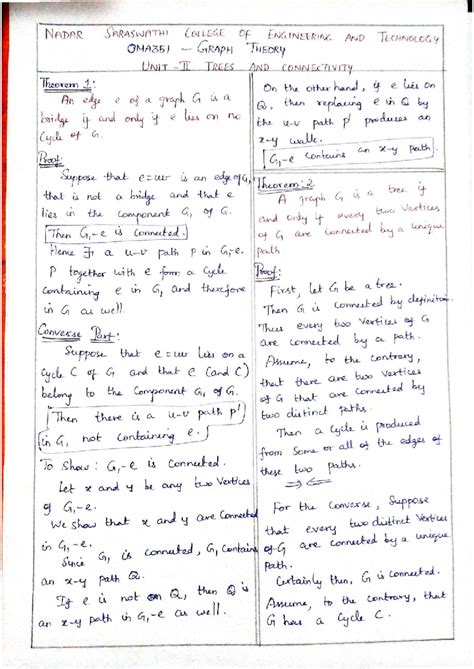 NADAR SARASWATHI COLLEGE OF ENGINEERING AND TECHNOLOGY
OMA351 – GRAPH THEORY
UNIT - II TREES AND CONNECTIVITY
Theorem 1:
An edge e of a graph G is a
bridge if and only if e lies on no
Cycle of G.
Proof:
Suppose that e = uv is an edge of G,
that is not a bridge and that e
lies in the component G₁ of G.
Then G₁-e is connected.
Hence ∃ a u-v path P in G₁-e.
P together with e form a Cycle
containing e in G₁ and therefore
in G as well.
Converse Part:
Suppose that e = uv lies on a
cycle C of G and that e (and C)
belong to the Component G₁ of G.
Then there is a u-v path p'
in G₁ not containing e.
To Show: G₁-e is Connected.
Let x and y be any two Vertices
of G₁-e.
We show that x and y are Connected
in G₁-e.
Since G₁ is connected, G₁ contains
an x-y path Q.
If e is not on Q, then Q is
an x-y path in G₁-e as well.
On the other hand, if e lies on
Q, then replacing e in Q by
the u-v path p' produces an
x-y walk.
G₁-e contains an x-y path.
Theorem: 2
A graph G is a tree if
and only if every two Vertices
of G are connected by a unique
Path
Proof:
First, let G be a tree.
Then G is connected by definition.
Thus every two Vertices of G
are connected by a path.
Assume, to the contrary,
that there are two vertices
of G that are connected by
two distinct paths.
Then a Cycle is produced
from Some or all of the edges of
these two paths.
⇒⇐
For the Converse, Suppose
that every two distinct Vertices
of G are connected by a unique
Path.
Certainly then, G is Connected.
Assume, to the contrary, that
G has a Cycle C.